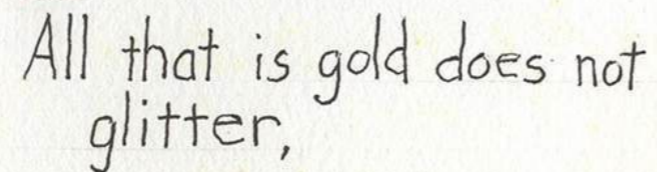 All that is gold does not
glitter,